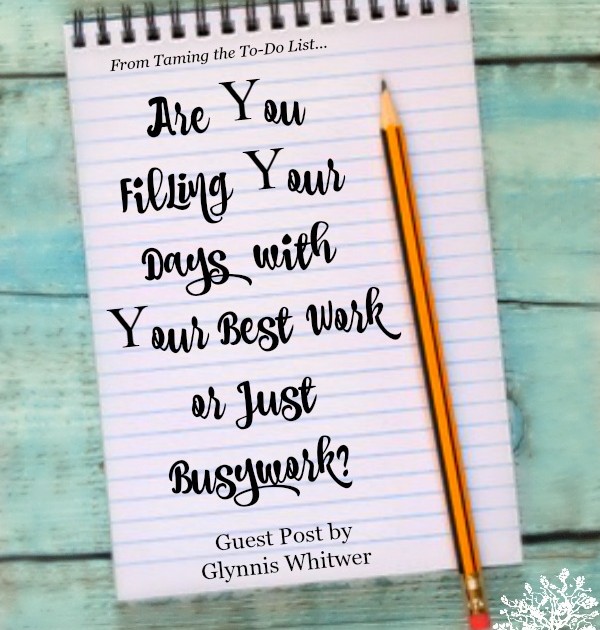 From Taming the To-Do List...
Are You
Filling Your
Days with
Your Best Work
or Just
Busywork?
Guest Post by
Glynnis Whitwer